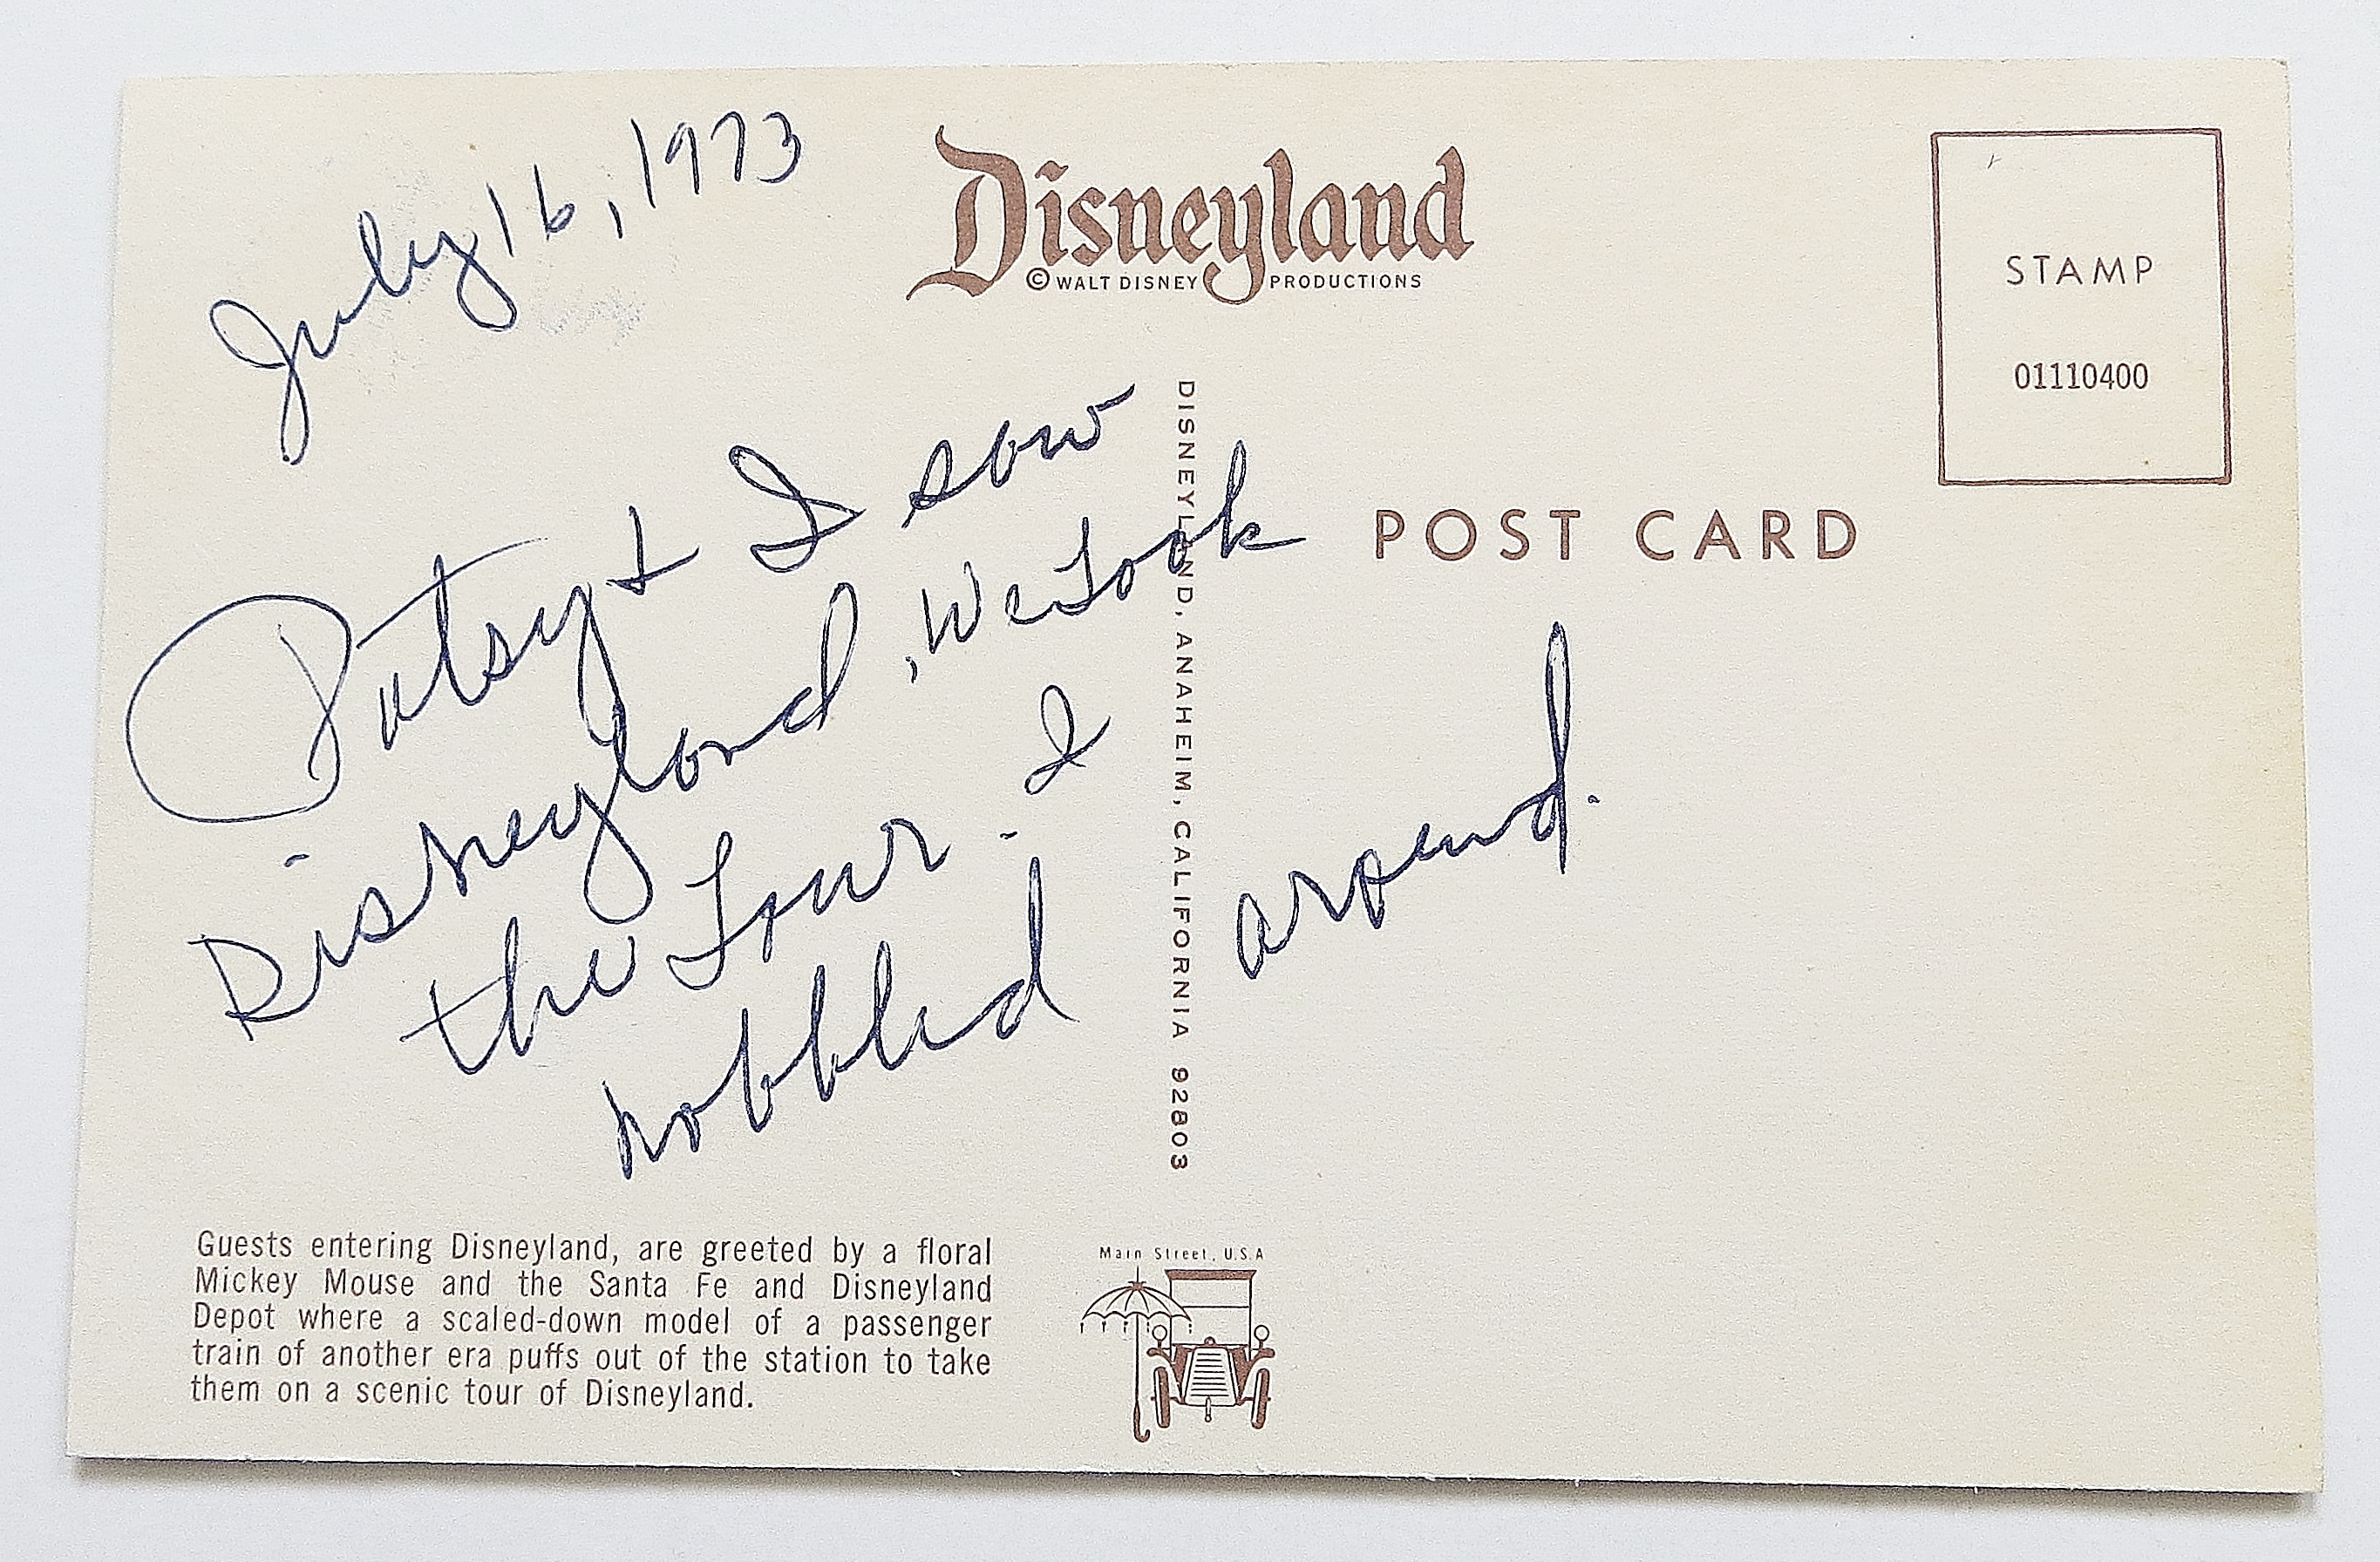 July 16, 1973
Patsy & I saw
Disneyland, We Took
the Tour. I
hobbled around.
Disneyland
© WALT DISNEY PRODUCTIONS
STAMP
01110400
POST CARD
DISNEYLAND, ANAHEIM, CALIFORNIA 92803
Guests entering Disneyland, are greeted by a floral
Mickey Mouse and the Santa Fe and Disneyland
Depot where a scaled-down model of a passenger
train of another era puffs out of the station to take
them on a scenic tour of Disneyland.
Main Street, U.S.A